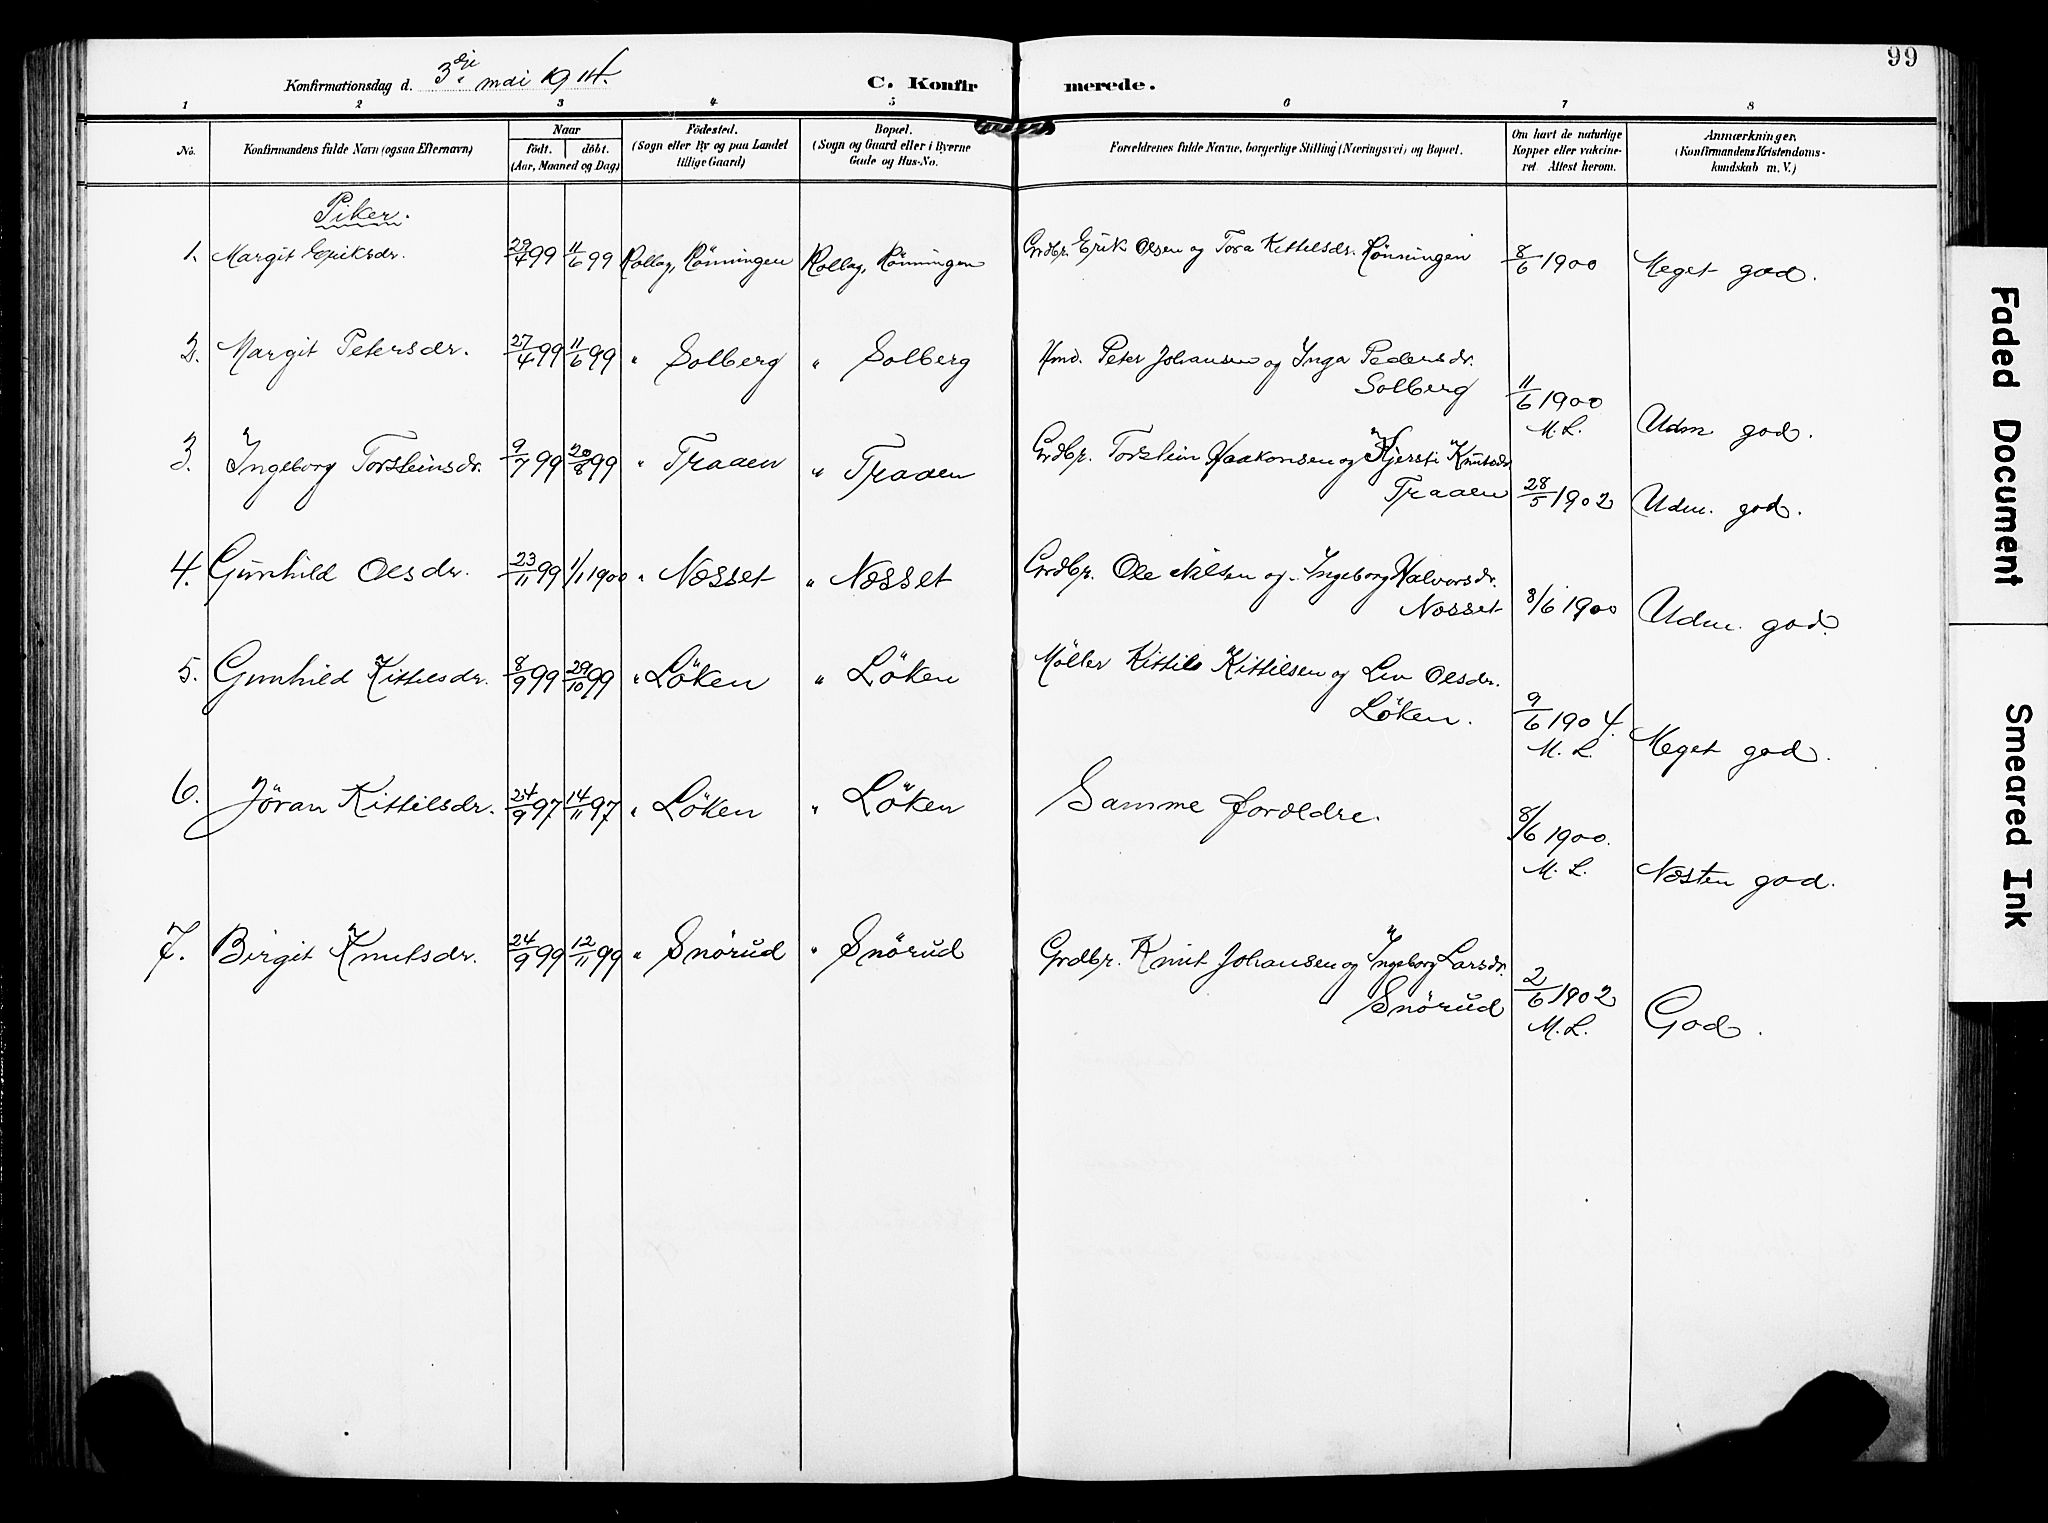 99
Konfirmationsdag d. 3dje mai 1914.
C. Konfirmerede.
1 2 3 4 5 6 7 8
No.
Konfirmandens fulde Navn (ogsaa Efternavn)
Naar
født. døbt.
(Aar, Maaned og Dag)
Fødested.
(Sogn eller By og paa Landet
tillige Gaard)
Bopæl.
(Sogn og Gaard eller i Byerne
Gade og Hus-No.
Forældrenes fulde Navne, borgerlige Stilling (Næringsvei) og Bopæl.
Om havt de naturlige
Kopper eller vakcine-
ret. Attest herom.
Anmærkninger.
(Konfirmandens Kristendoms-
kundskab m. V.)
Piker.
1. Margit Eriksdr. 29/4 99 11/6 99 Rollag, Rönningen Rollag, Rönningen Grdbr. Erik Olsen og Tora Kittilsdr. Rönningen 8/6 1900 Meget god.
2. Margit Petersdr. 27/4 99 11/6 99 " Solberg " Solberg Hmd. Peter Johansen og Inga Pedersdr.
Solberg 11/6 1900
M. L. Udm god.
3. Ingeborg Torsteinsdr. 9/7 99 20/8 99 " Traaen " Traaen Grdbr. Torstein Haakonsen og Kjersti Knutsdr
Traaen 28/5 1902 Udm. god.
4. Gunhild Olsdr. 23/11 99 1/1 1900 " Næsset " Næsset Grdbr. Ole Nilsen og Ingeborg Halvorsdr.
Næsset 8/6 1900 Udm. god.
5. Gunhild Kittilsdr. 8/9 99 29/10 99 " Löken " Löken Möller Kittil Kittilsen og Liv Olsdr.
Löken. 9/6 1904.
M. L. Meget god.
6. Jöran Kittilsdr. 24/9 97 14/11 97 " Löken " Löken Samme foræeldre. 8/6 1900.
M. L. Næsten god.
7. Birgit Knutsdr. 24/9 99 12/11 99 " Snörud " Snörud Grdbr. Knut Johansen og Ingeborg Larsdr.
Snörud 2/6 1902
M. L. God.
Faded Document
Smeared Ink